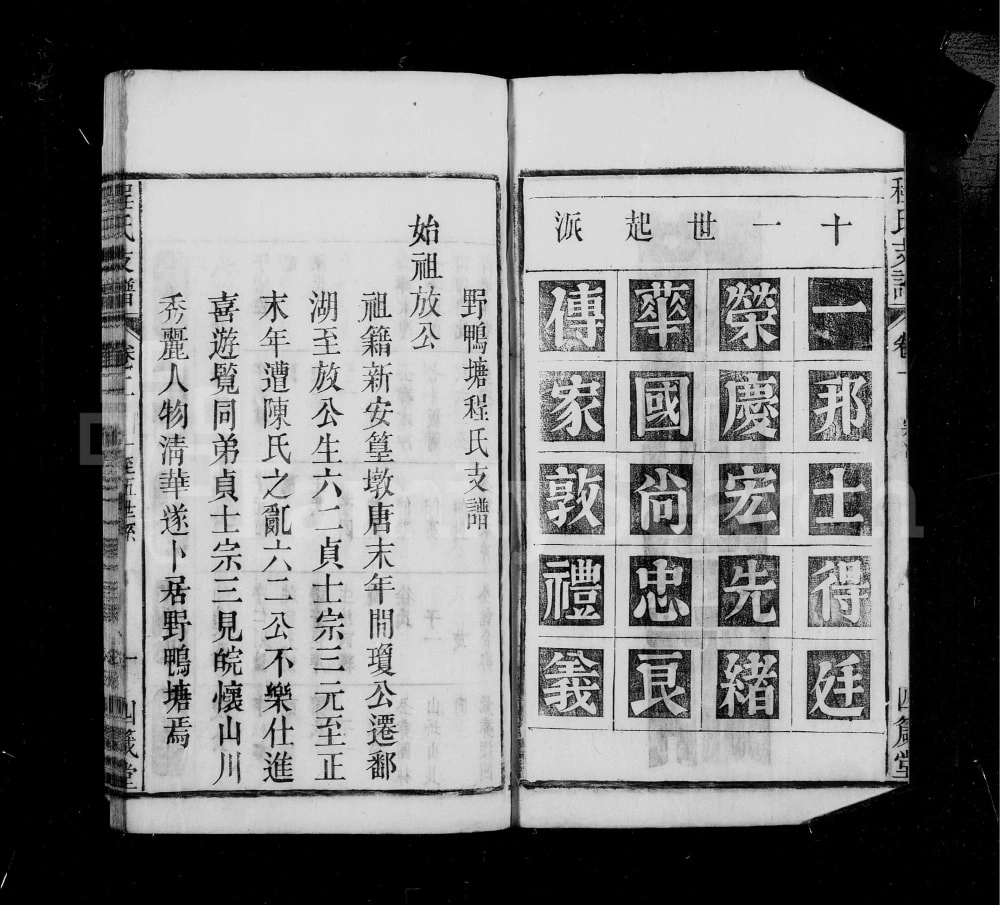 程氏支譜
卷一
四箴堂
十一世起派
一邦士得廷
榮慶宏先緒
華國尚忠良
傳家敦禮義
野鴨塘程氏支譜
始祖放公
祖籍新安篁墩唐末年間瓊公遷鄱
湖至放公生六二貞士宗三元至正
末年遭陳氏之亂六二公不樂仕進
喜遊覧同弟貞士宗三見皖懷山川
秀麗人物清華遂卜居野鴨塘焉
程氏支譜
卷十二
一至五世系
一
四箴堂